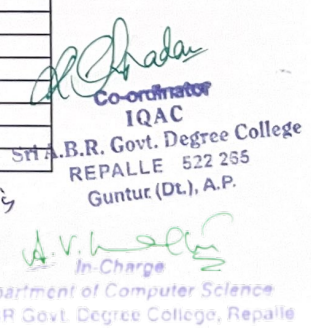 Co-ordinator
IQAC
Sri A.B.R. Govt. Degree College
REPALLE 522 265
Guntur (Dt.), A.P.
A.V.
In-Charge
partment of Computer Science
BR Govt. Degree College, Repalle